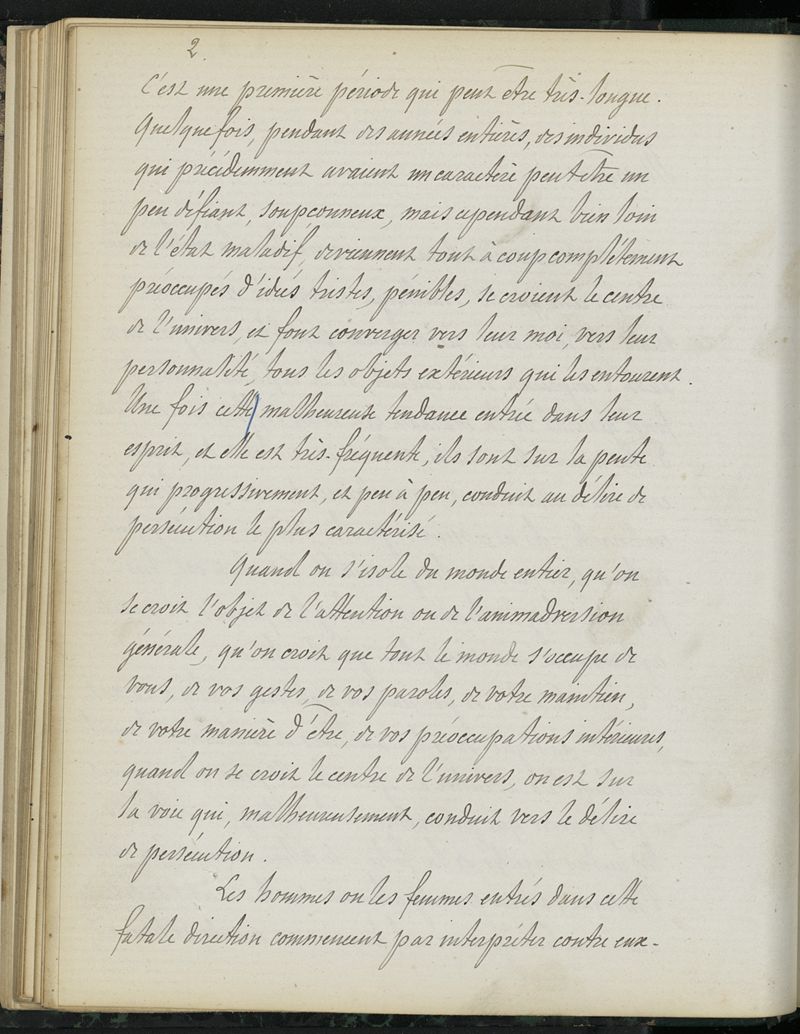 2.
C'est une première période qui peut être très-longue.
Quelquefois, pendant des années entières, des individus
qui précédemment avaient un caractère peut être un
peu défiant, soupçonneux, mais cependant bien loin
de l'état maladif, deviennent tout à coup complétement
préoccupés d'idées tristes, pénibles, se croient le centre
de l'univers, et font converger vers leur moi, vers leur
personnalité, tous les objets extérieurs qui les entourent.
Une fois cette malheureuse tendance entrée dans leur
esprit, et elle est très-fréquente, ils sont sur la pente
qui progressivement, et peu à peu, conduit au délire de
persécution le plus caractérisé.
Quand on s'isole du monde entier, qu'on
se croit l'objet de l'attention ou de l'animadversion
générale, qu'on croit que tout le monde s'occupe de
vous, de vos gestes, de vos paroles, de votre maintien,
de votre manière d'être, de vos préoccupations intérieures,
quand on se croit le centre de l'univers, on est sur
la voie qui, malheureusement, conduit vers le délire
de persécution.
Les hommes ou les femmes entrés dans cette
fatale direction commencent par interpréter contre eux-